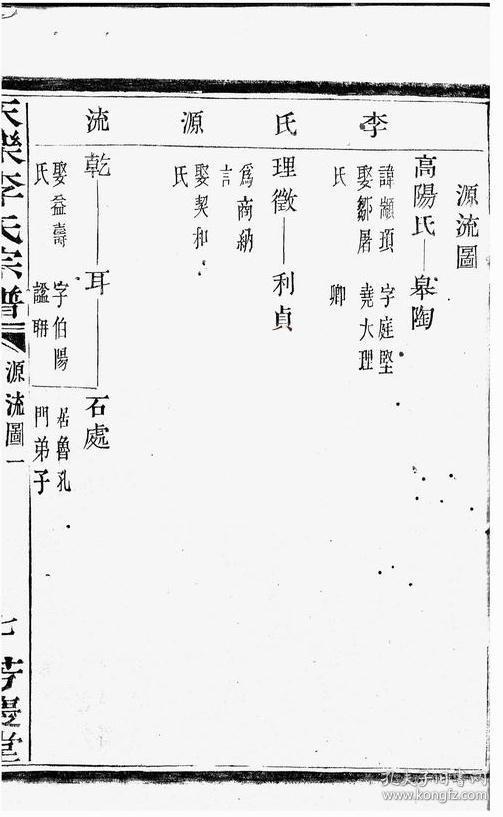 源流圖
李氏源流
高陽氏——皋陶
諱顓頊 字庭堅
娶鄒屠氏 堯大理卿
理徵——利貞
為南納言
娶契和氏
乾——耳——石處
娶益壽氏 字伯陽 居魯孔門弟子
謚聃
李氏宗譜
源流圖一
七
www.kongfz.com